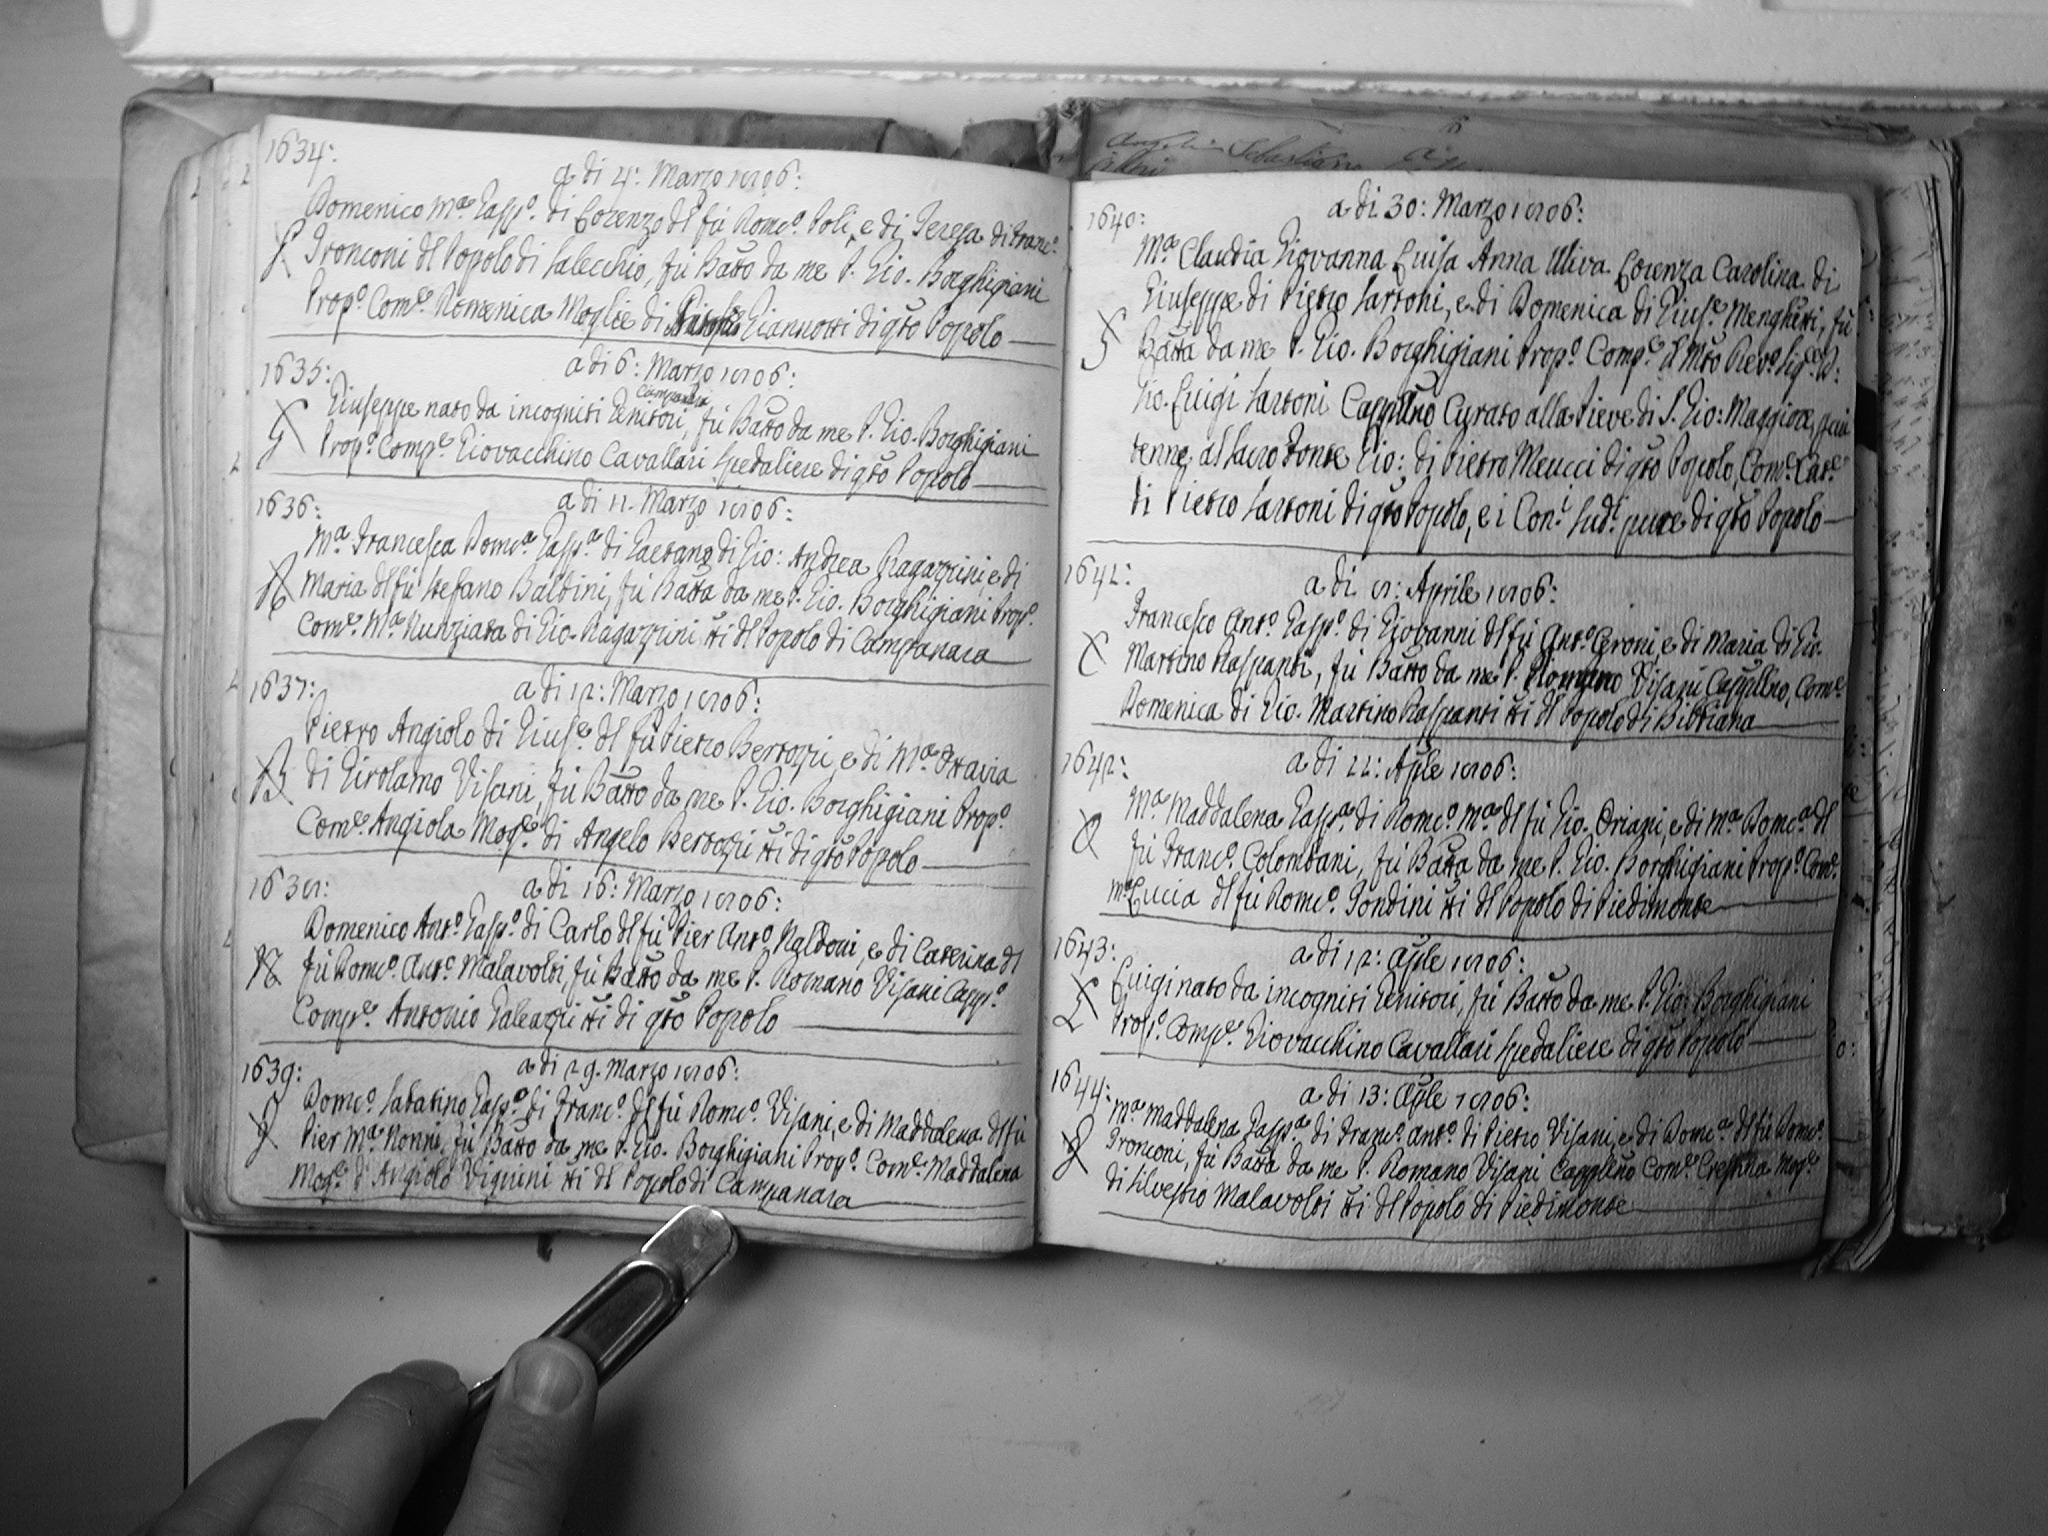 1634:
a di 4: Marzo 1806:
Domenico Mª Gasp.º di Lorenzo dl fù Dom.co Poli, e di Teresa di Franc.º
Tronconi dl Popolo di Salecchio, fù Batto da me P. Gio. Borghigiani
Prop.º Com.e Domenica Moglie di Giannotti di qto Popolo
1635:
a di 6: Marzo 1806:
Giuseppe nato da incogniti Genitori, fù Batto da me P. Gio. Borghigiani
Prop.º Comp.e Giovacchino Cavallari Spedaliere di qto Popolo
1636:
a di 11. Marzo 1806:
Mª Francesca Dom.ca Gasp.a di Gaetano di Gio: Andrea Ragazzini, e di
Maria dl fù Stefano Baldini, fù Batta da me P. Gio. Borghigiani Prop.º
Com.e Mª Nunziata di Gio. Ragazzini tti dl Popolo di Campanara
1637:
a di 12: Marzo 1806:
Pietro Angiolo di Gius.e dl fù Pietro Bertozzi, e di Mª Ottavia
di Girolamo Visani, fù Batto da me P. Gio. Borghigiani Prop.º
Com.e Angiola Mog.e di Angelo Bertozzi tti di qto Popolo
1638:
a di 16: Marzo 1806:
Domenico Ant.º Gasp.º di Carlo dl fù Pier Ant.º Naldoni, e di Caterina dl
fù Dom.co Ant.º Malavolti, fù Batto da me P. Romano Visani Capp.º
Comp.e Antonio Galeazzi tti di qto Popolo
1639:
a di 29. Marzo 1806:
Dom.co Sabatino Gasp.º di Franc.º dl fù Dom.co Visani, e di Maddalena dl fù
Pier Mª Nonni, fù Batto da me P. Gio. Borghigiani Prop.º Com.e Maddalena
Mog.e d'Angiolo Vignini tti dl Popolo di Campanara
1640:
a di 30: Marzo 1806:
Mª Claudia Giovanna Luisa Anna Uliva Lorenza Carolina di
Giuseppe di Pietro Sartoni, e di Domenica di Gius.e Menghetti, fù
Batta da me P. Gio. Borghigiani Prop.º Comp.e il Mto Rev.º Sig.re D:
Gio. Luigi Sartoni Cappllno Curato alla Pieve di S. Gio: Maggiore, p cui
tenne al Sacro Fonte Gio: di Pietro Meucci di qto Popolo, Com.e Cat.a
di Pietro Sartoni di qto Popolo, e i Con.i Sud.i pure di qto Popolo
1641:
a di 8: Aprile 1806:
Francesco Ant.º Gasp.º di Giovanni dl fù Ant.º Ceroni, e di Maria di Gio.
Martino Raspanti, fù Batto da me P. Romano Visani Cappllno, Com.e
Domenica di Gio. Martino Raspanti tti dl Popolo di Bibbiana
1642:
a di 11: Aple 1806:
Mª Maddalena Gasp.a di Dom.co Mª dl fù Gio. Oriani, e di Mª Dom.ca dl
fù Franc.º Colombani, fù Batta da me P. Gio. Borghigiani Prop.º Com.e
Mª Lucia dl fù Dom.co Gondini tti dl Popolo di Piedimonte
1643:
a di 12: Aple 1806:
Luigi nato da incogniti Genitori, fù Batto da me P. Gio: Borghigiani
Prop.º Comp.e Giovacchino Cavallari Spedaliere di qto Popolo
1644:
a di 13: Aple 1806:
Mª Maddalena Gasp.a di Franc.º Ant.º di Pietro Visani, e di Dom.ca dl fù Dom.co
Tronconi, fù Batta da me P. Romano Visani Cappllno Com.e Mog.e
di Silvestro Malavolti tti dl Popolo di Piedimonte